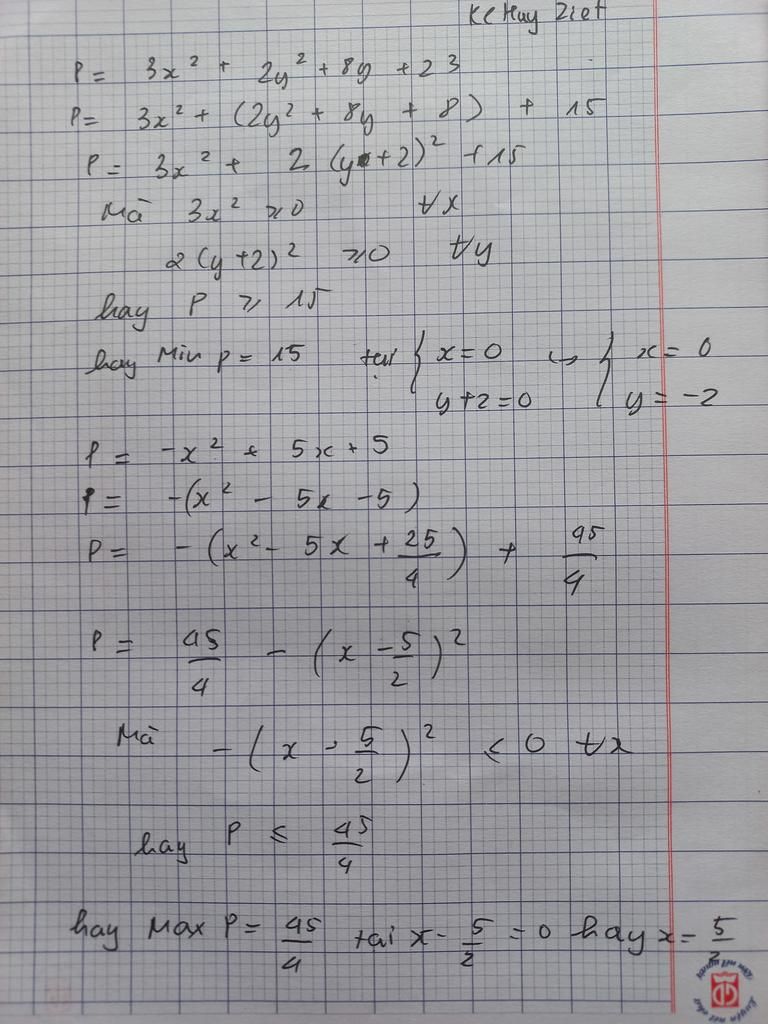 KC Huy Ziet
P = 3x² + 2y² + 8y + 23
P = 3x² + (2y² + 8y + 8) + 15
P = 3x² + 2 (y + 2)² + 15
Mà 3x² ≥ 0 ∀x
2(y+2)² ≥ 0 ∀y
hay P ≥ 15
hay Min P = 15 tại { x = 0 ↪ { x = 0
y + 2 = 0 y = -2
P = -x² + 5x + 5
P = -(x² - 5x - 5)
P = -(x² - 5x + 25/4) + 45/4
P = 45/4 - (x - 5/2)²
Mà -(x - 5/2)² ≤ 0 ∀x
hay P ≤ 45/4
hay Max P = 45/4 tại x - 5/2 = 0 hay x = 5/2